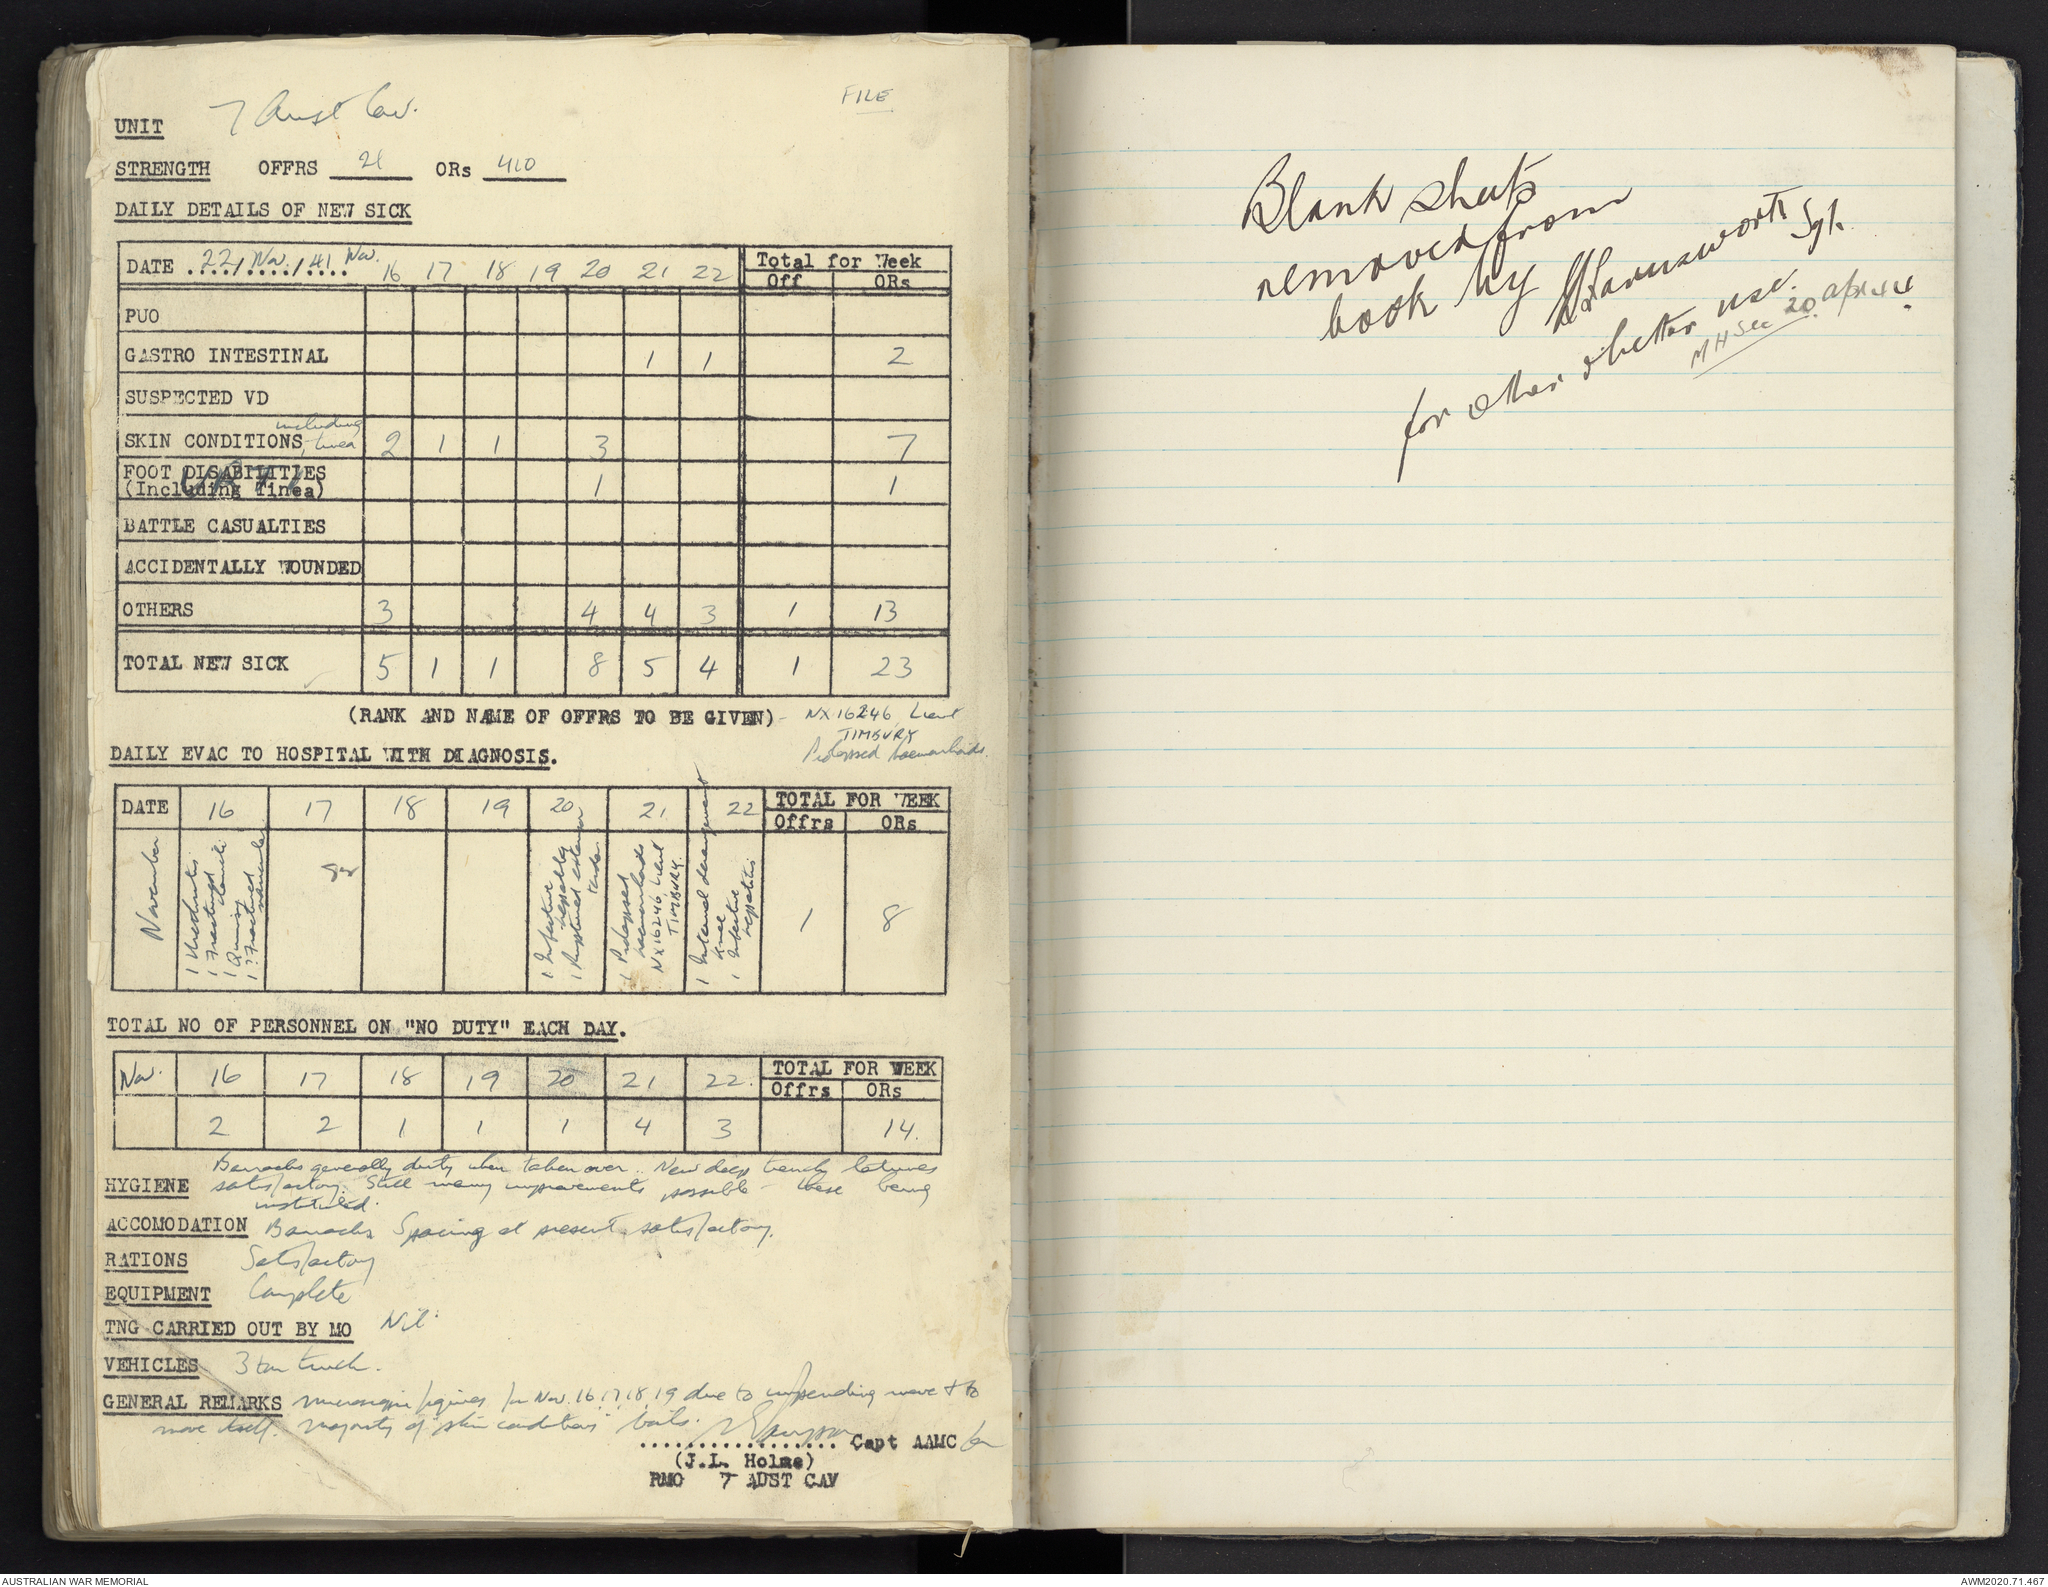 FILE
UNIT 7 Aust Cav.
STRENGTH OFFRS 21 ORs 410
DAILY DETAILS OF NEW SICK
DATE 22/Nov./41 Nov. 16 17 18 19 20 21 22 Total for Week
Off ORs
PUO
GASTRO INTESTINAL 1 1 2
SUSPECTED VD
SKIN CONDITIONS, including tinea 2 1 1 3 7
FOOT DISABILITIES
(Including Tinea) 1 1
BATTLE CASUALTIES
ACCIDENTALLY WOUNDED
OTHERS 3 4 4 3 1 13
TOTAL NEW SICK 5 1 1 8 5 4 1 23
(RANK AND NAME OF OFFRS TO BE GIVEN) - NX16246 Lieut
TIMBURY
Prolapsed haemorrhoids.
DAILY EVAC TO HOSPITAL WITH DIAGNOSIS.
DATE 16 17 18 19 20 21. 22 TOTAL FOR WEEK
Offrs ORs
November
1 Urethritis
1 Fractured
1 Quinsy
1 ? Fractured
1 Infective hepatitis
1 Ruptured extensor
1 Prolapsed
haemorrhoids
NX16246 Lieut
TIMBURY.
1 Internal derangement
knee
1 Infective
hepatitis
1 8
TOTAL NO OF PERSONNEL ON "NO DUTY" EACH DAY.
Nov. 16 17 18 19 20 21 22. TOTAL FOR WEEK
Offrs ORs
2 2 1 1 1 4 3 14.
HYGIENE Barracks generally dirty when taken over. New deep trench latrines
satisfactory. Still many improvements possible - these being
instituted.
ACCOMODATION Barracks Spacing at present satisfactory.
RATIONS Satisfactory
EQUIPMENT Complete
TNG CARRIED OUT BY MO Nil.
VEHICLES 3 ton truck.
GENERAL REMARKS figures for Nov. 16, 17, 18, 19 due to impending move & to
move itself. Majority of "skin conditions" boils.
.................. Capt AAMC for
(J.L. Holme)
RMO 7 AUST CAV
Blank sheets
removed from
book by Harmsworth Sgt.
for other & better use.
MH Sec 20 Apl 44
AUSTRALIAN WAR MEMORIAL
AWM2020.71.467